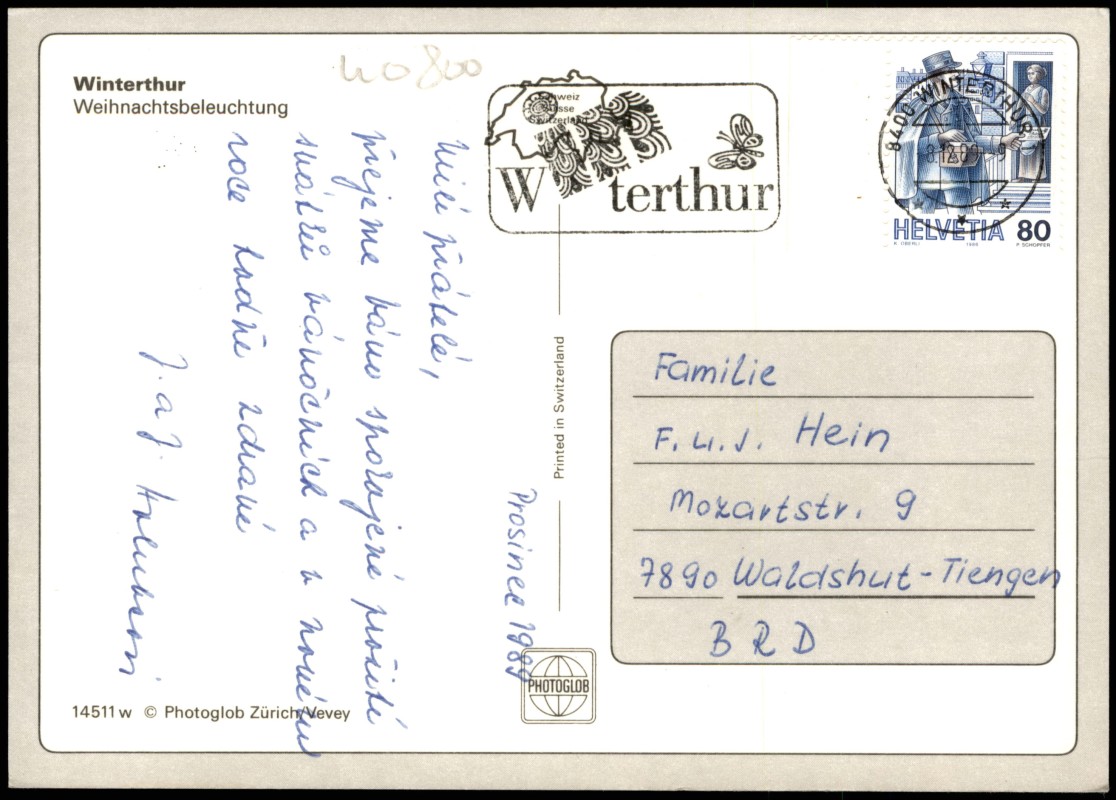 Winterthur
Weihnachtsbeleuchtung
40800
Schweiz
Suisse
Switzerland
W terthur
8400 WINTERTHUR
8.12.89 - 9
HELVETIA 80
K. OBERLI 1986 P. SCHOPFER
Prosinec 1989
Milí přátelé,
přejeme Vám spokojené prožití
svátků vánočních a v novém
roce hodně zdraví
J. a J.
Printed in Switzerland
Familie
F. u. J. Hein
Mozartstr. 9
7890 Waldshut-Tiengen
BRD
PHOTOGLOB
14511 w © Photoglob Zürich/Vevey